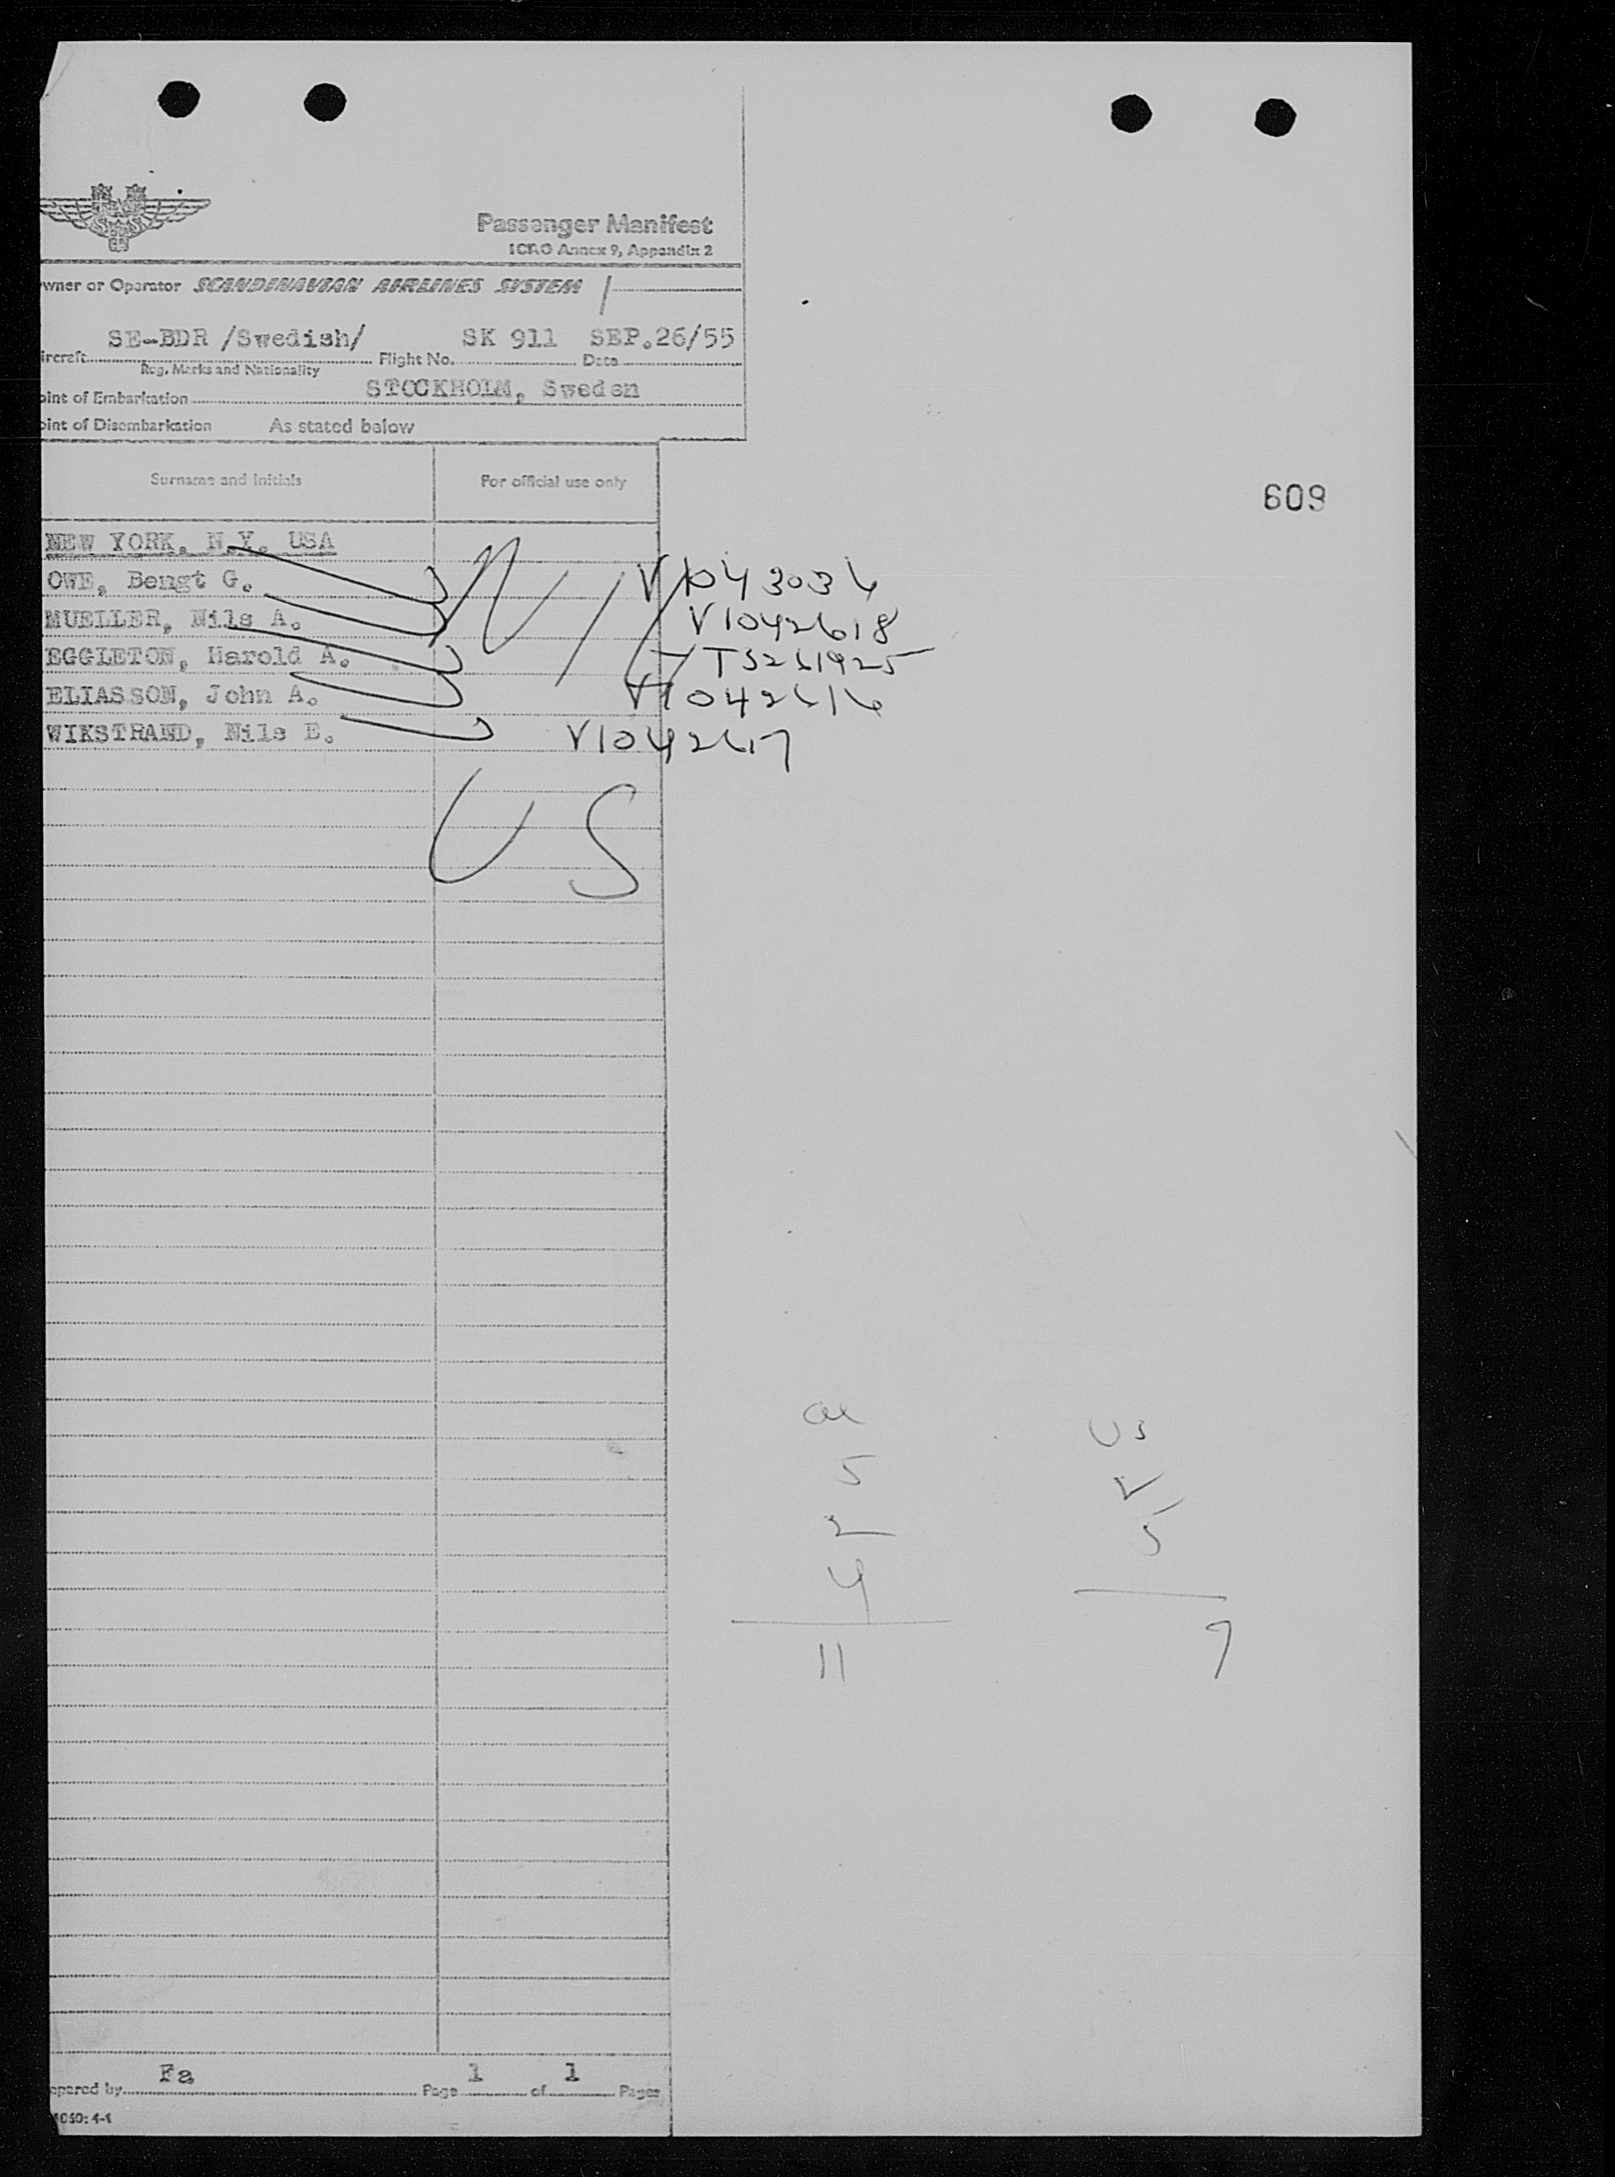 Passenger Manifest
ICAO Annex 9, Appendix 2
wner or Operator SCANDINAVIAN AIRLINES SYSTEM
SE-BDR /Swedish/ SK 911 SEP.26/55
ircraft Flight No. Date
Reg. Marks and Nationality
STOCKHOLM, Sweden
oint of Embarkation
oint of Disembarkation As stated below
Surname and Initials For official use only
609
NEW YORK, N.Y. USA
OWE, Bengt G. V1043036
MUELLER, Nils A. V1042618
EGGLETON, Harold A. T5261925
ELIASSON, John A. V1042616
WIKSTRAND, Nils E. V1042617
US
US
5
2
5
4
11
7
Fa 1 1
epared by Page of Pages